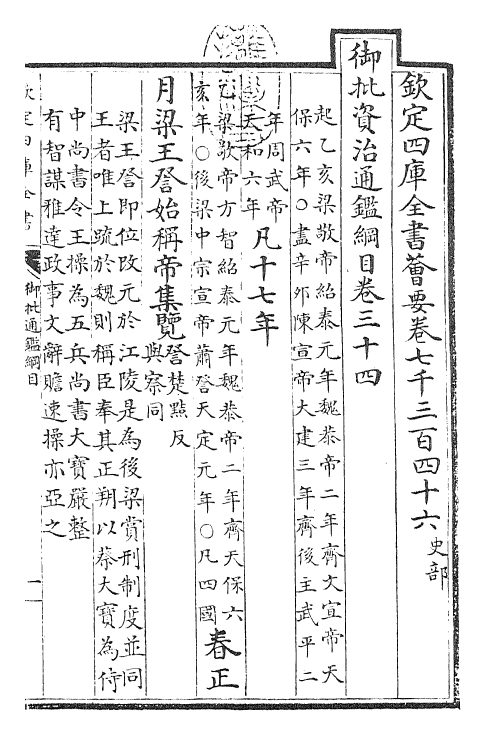 欽定四庫全書薈要卷七千三百四十六 史部
御批資治通鑑綱目卷三十四
起乙亥梁敬帝紹泰元年魏恭帝二年齊文宣帝天
保六年○盡辛卯陳宣帝大建三年齊後主武平二
年周武帝
天和六年
凡十七年
乙梁敬帝方智紹泰元年魏恭帝二年齊天保六
亥年○後梁中宗宣帝蕭詧天定元年○凡四國
春正
月梁王詧始稱帝集覽
詧楚黠反
與察同
梁王詧即位改元於江陵是為後梁賞刑制度並同
王者唯上疏於魏則稱臣奉其正朔以蔡大寶為侍
中尚書令王操為五兵尚書大寶嚴整
有智謀雅達政事文辭贍速操亦亞之
欽定四庫全書
御批通鑑綱目
一